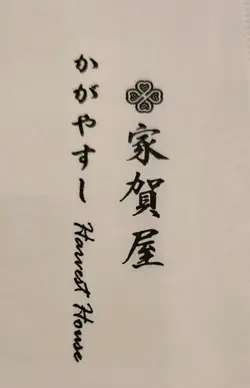 家賀屋
かがやすし Harvest House